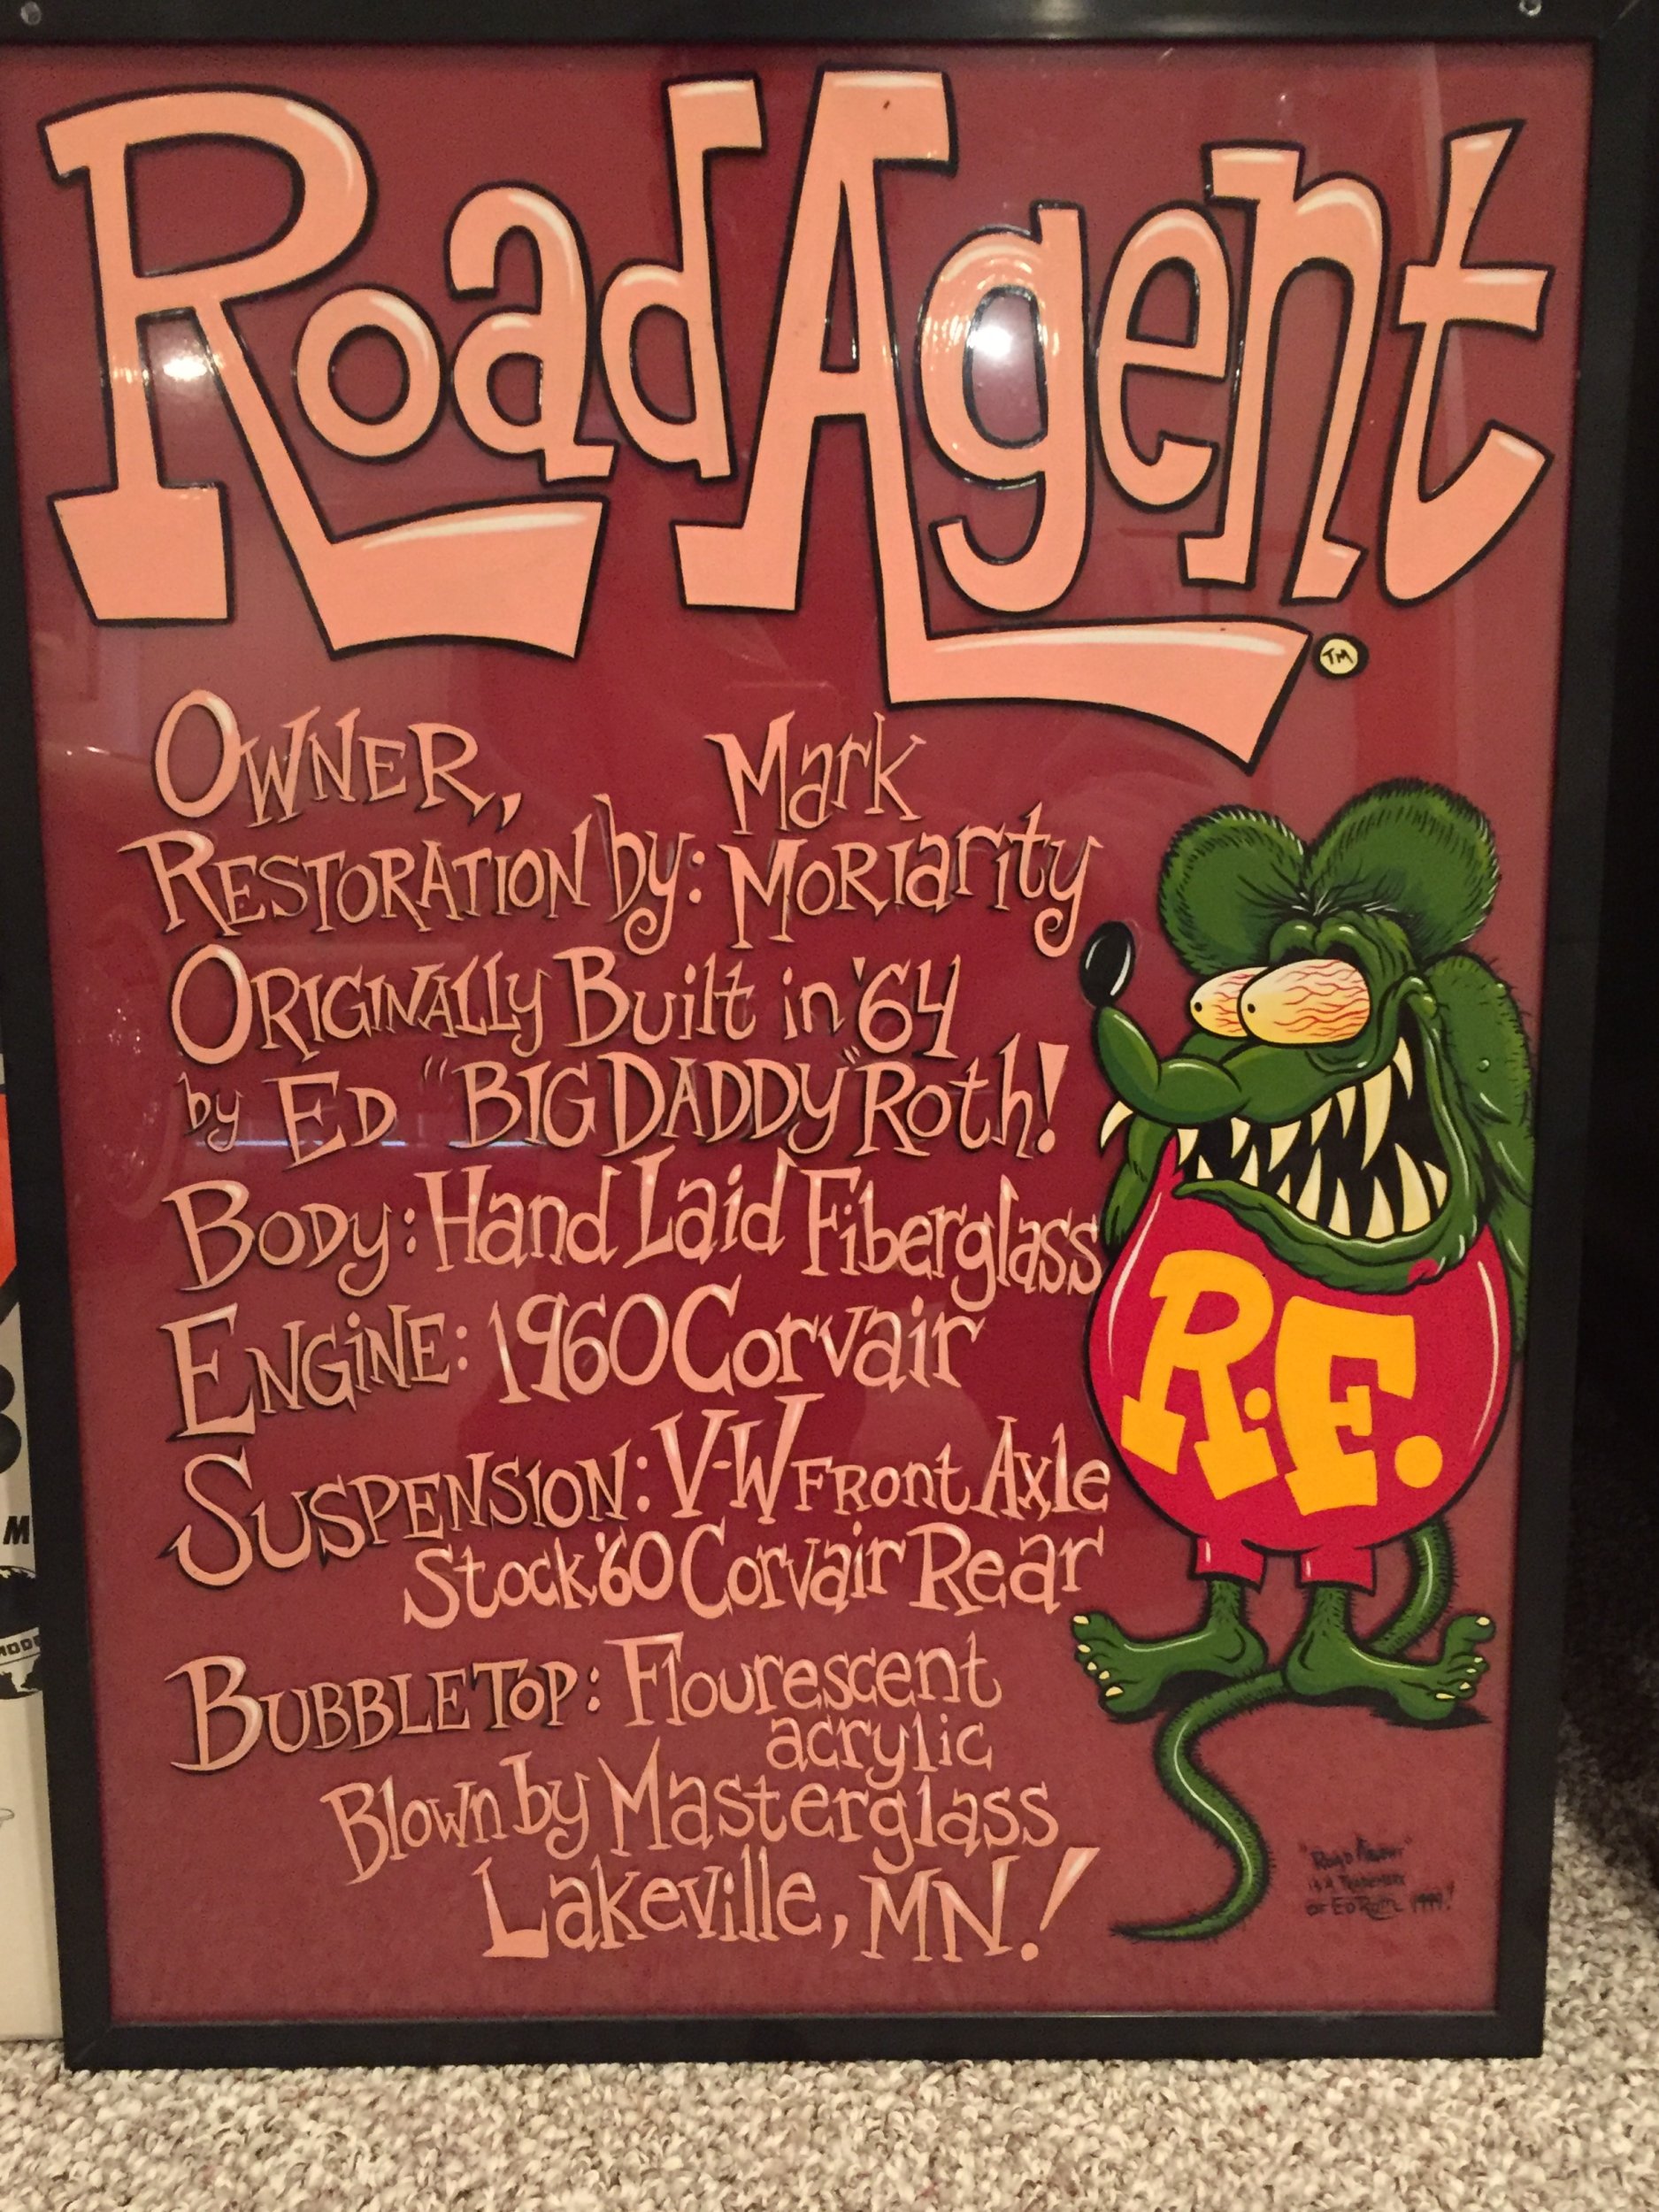 Road Agent
TM
OWNER, Mark
RESTORATION by: MORIarity
ORIGINALLy Built in '64
by ED "BIG DADDy" Roth!
BODy: Hand Laid Fiberglass
ENGiNE: 1960 Corvair
SUSPENSION: V-W FRont Axle
Stock '60 Corvair Rear
BUBBLETOP: Flourescent
acrylic
Blown by Masterglass
Lakeville, MN!
R.F.
"Road Agent"
is a Trademark
OF ED Roth 1999!
M